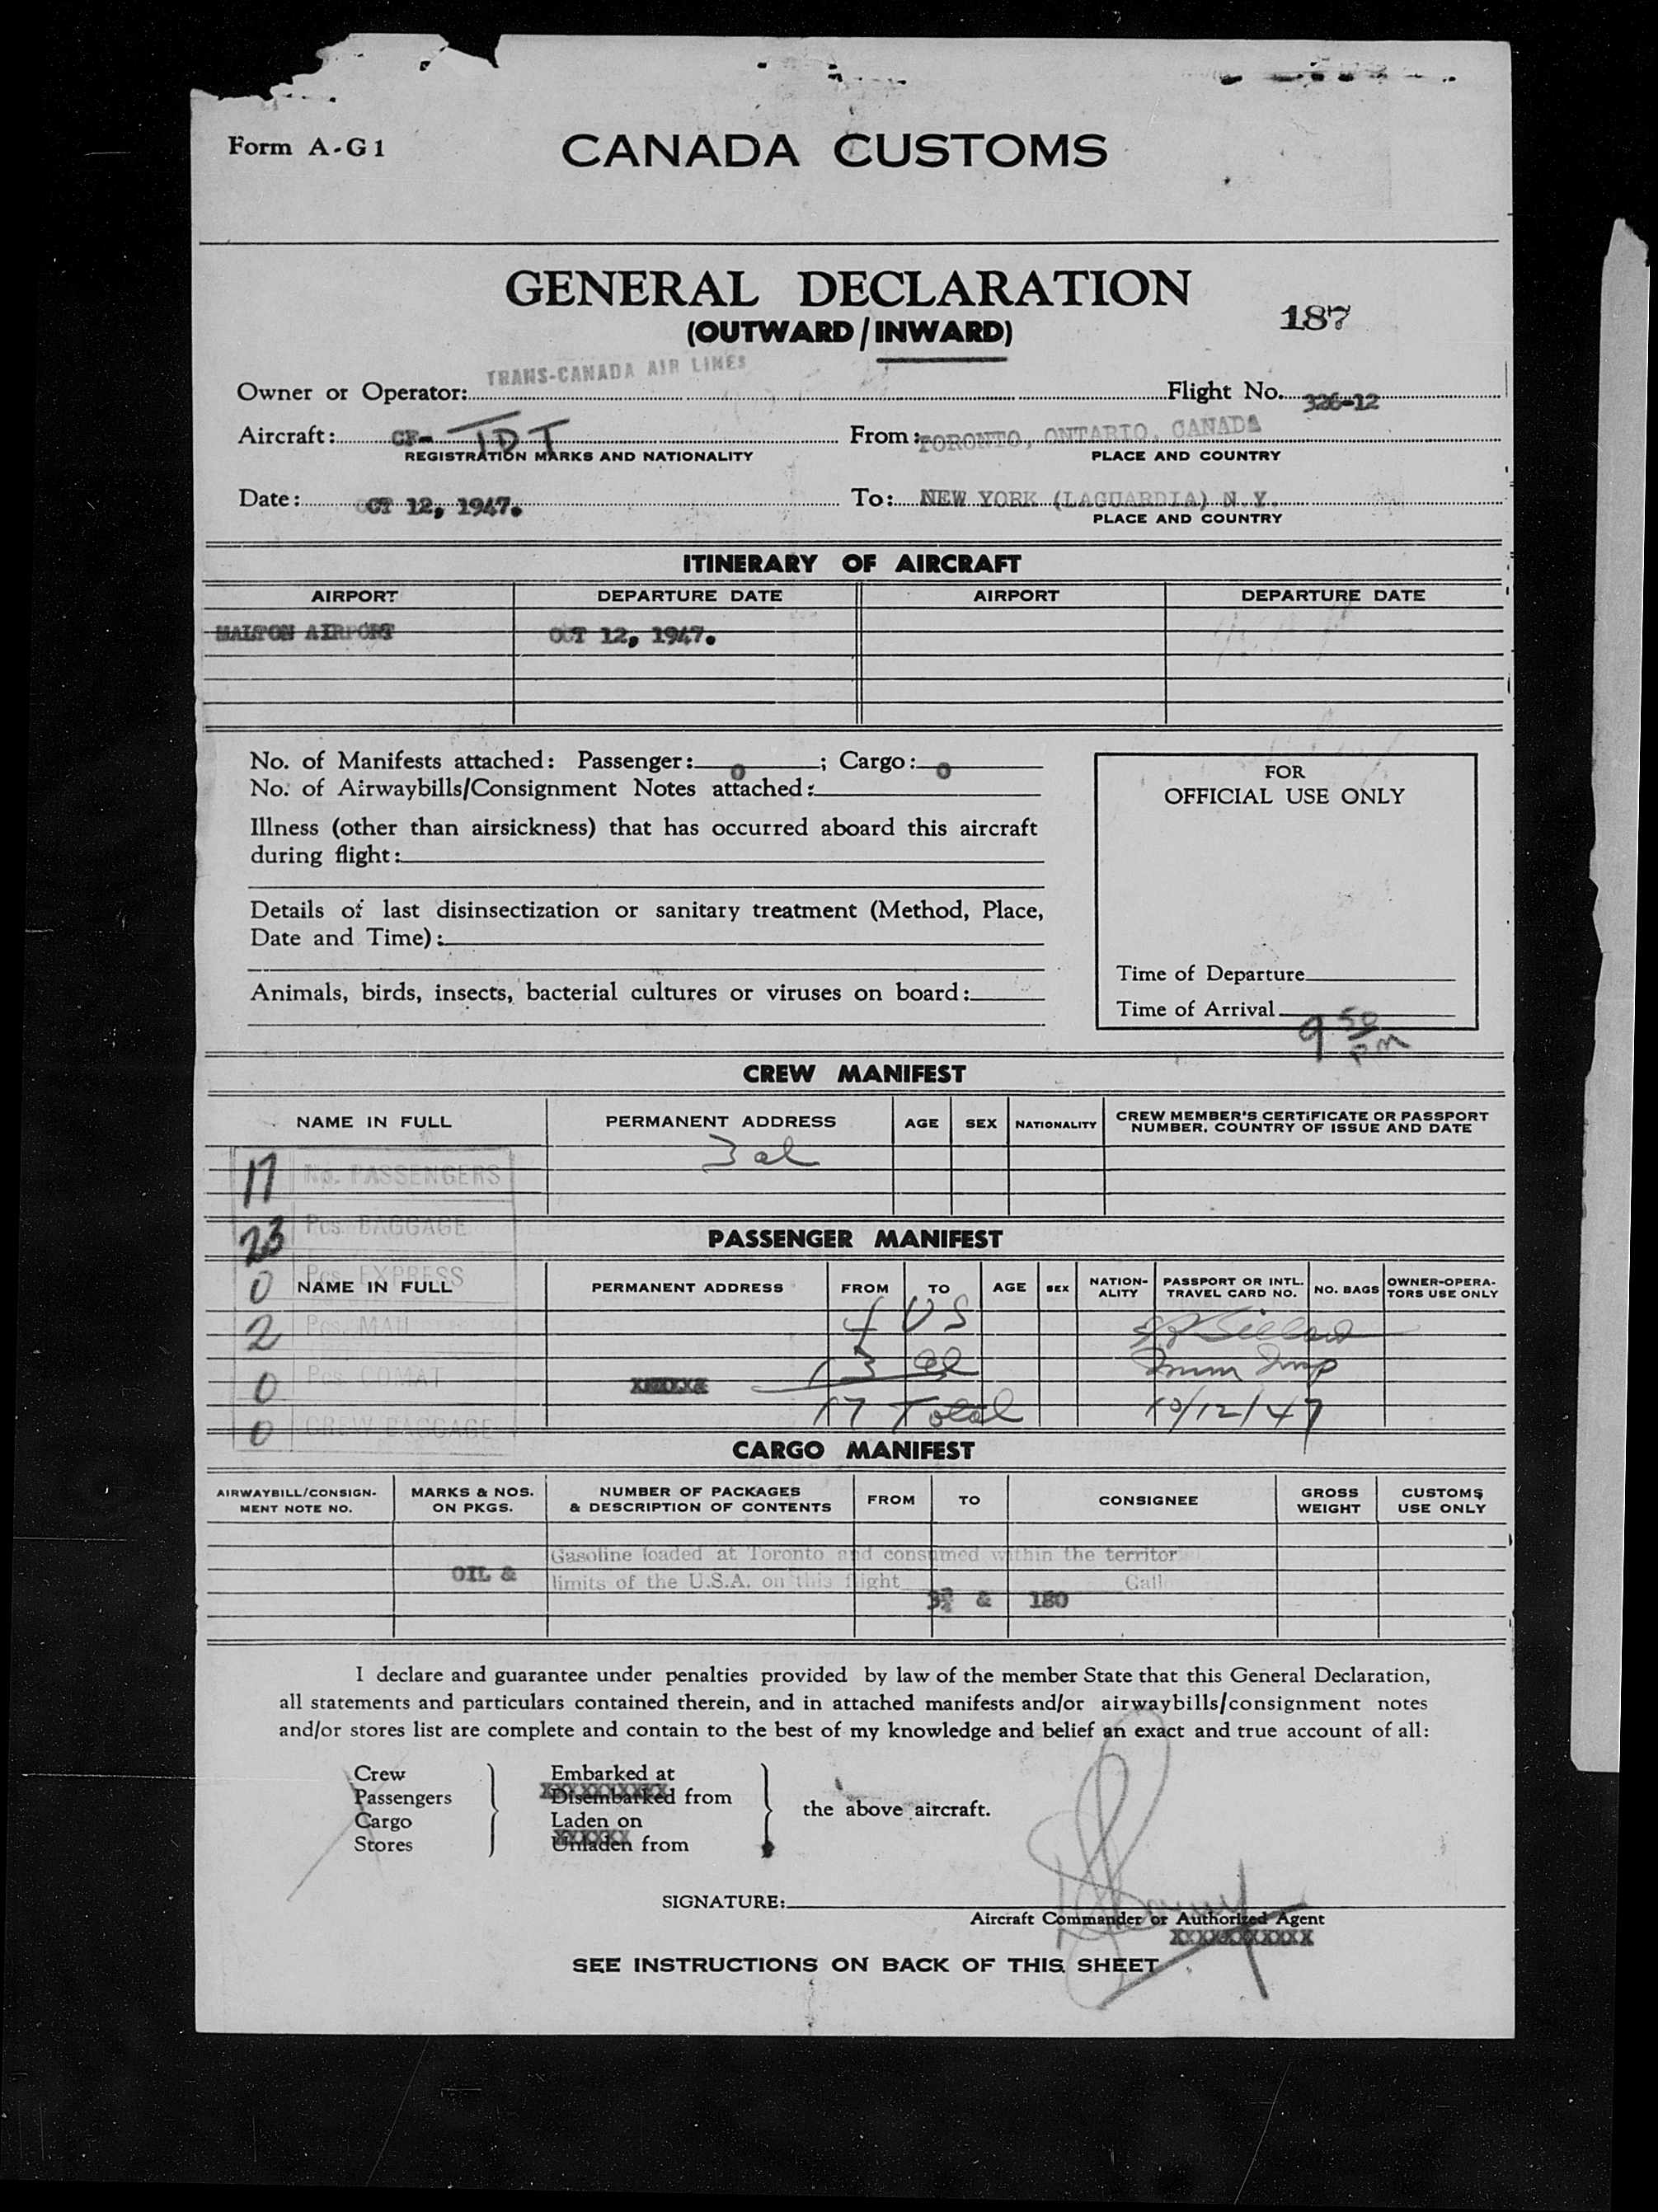 Form A-G1
CANADA CUSTOMS
GENERAL DECLARATION
(OUTWARD/INWARD)
187
TRANS-CANADA AIR LINES
Owner or Operator: Flight No. 326-12
Aircraft: CF- TDT From: TORONTO, ONTARIO, CANADA
REGISTRATION MARKS AND NATIONALITY PLACE AND COUNTRY
Date: OCT 12, 1947. To: NEW YORK (LAGUARDIA) N.Y.
PLACE AND COUNTRY
ITINERARY OF AIRCRAFT
AIRPORT DEPARTURE DATE AIRPORT DEPARTURE DATE
MALTON AIRPORT OCT 12, 1947.
No. of Manifests attached: Passenger: 0 ; Cargo: 0
No. of Airwaybills/Consignment Notes attached:
Illness (other than airsickness) that has occurred aboard this aircraft
during flight:
Details of last disinsectization or sanitary treatment (Method, Place,
Date and Time):
Animals, birds, insects, bacterial cultures or viruses on board:
FOR
OFFICIAL USE ONLY
Time of Departure
Time of Arrival
9 50 PM
CREW MANIFEST
NAME IN FULL PERMANENT ADDRESS AGE SEX NATIONALITY CREW MEMBER'S CERTIFICATE OR PASSPORT NUMBER, COUNTRY OF ISSUE AND DATE
3 al
17 No. PASSENGERS
23 Pcs. BAGGAGE
PASSENGER MANIFEST
0 Pcs. EXPRESS
NAME IN FULL PERMANENT ADDRESS FROM TO AGE SEX NATION-ALITY PASSPORT OR INTL. TRAVEL CARD NO. NO. BAGS OWNER-OPERA-TORS USE ONLY
2 Pcs. MAIL
4 US
0 Pcs. COMAT
13 al
Imm Insp
17 Total
10/12/47
0 CREW BAGGAGE
CARGO MANIFEST
AIRWAYBILL/CONSIGN-MENT NOTE NO. MARKS & NOS. ON PKGS. NUMBER OF PACKAGES & DESCRIPTION OF CONTENTS FROM TO CONSIGNEE GROSS WEIGHT CUSTOMS USE ONLY
Gasoline loaded at Toronto and consumed within the territor
OIL & limits of the U.S.A. on this flight Gall
& 180
I declare and guarantee under penalties provided by law of the member State that this General Declaration,
all statements and particulars contained therein, and in attached manifests and/or airwaybills/consignment notes
and/or stores list are complete and contain to the best of my knowledge and belief an exact and true account of all:
Crew Embarked at
Passengers Disembarked from
the above aircraft.
Cargo Laden on
Stores Unladen from
SIGNATURE:
Aircraft Commander or Authorized Agent
XXXXXXXXXXX
SEE INSTRUCTIONS ON BACK OF THIS SHEET